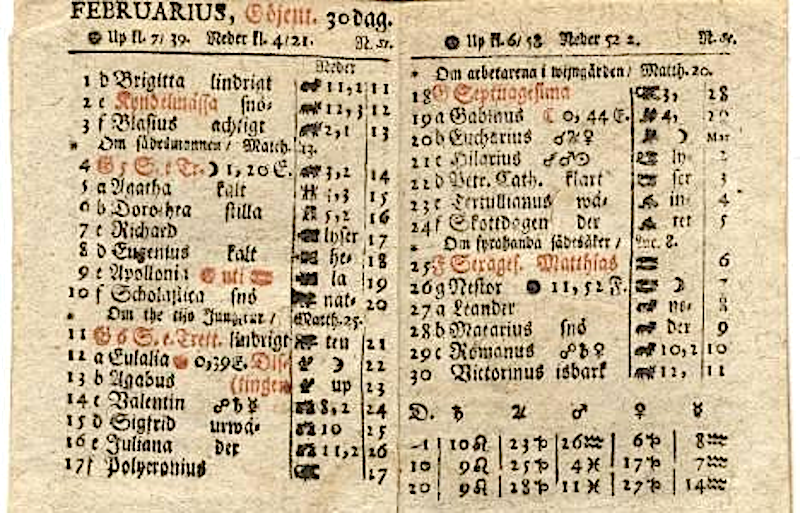 FEBRUARIUS, Göjent. 30 dag.
Up kl. 7/ 39. Neder kl. 4/21. N. St.
Neder
1 d Brigitta lindrigt 11,2 11
2 e Kyndelmässa snö- 12,3 12
3 f Blasius achtigt 2,1 13
Om sädesmannen/ Matth. 13.
4 G 5 S. e Tr. ☽ 1,20 E. 3,2 14
5 a Agatha kalt 4,3 15
6 b Dorothea stilla 5,2 16
7 c Richard lyser 17
8 d Eugenius kalt he- 18
9 e Apollonia uti la 19
10 f Scholastica snö nat- 20
Om the tijo Jungfrur/ Matth. 25.
11 G 6 S. e. Trett. lindrigt ten 21
12 a Eulalia 0,39 E. Dis- ☽ 22
13 b Agabus (tingen up 23
14 c Valentin ♂♄☿ 8,2 24
15 d Sigfrid urwä- 10 25
16 e Juliana der 11,2 26
17 f Polycronius 17
Up kl. 6/58 Neder 5 2 2. N. St.
Om arbetarena i wijngården/ Matth. 20.
18 G Septuagesima 3, 28
19 a Gabinus ☾ 0, 44 E. 4,
20 b Eucharius ♂♃♀ ☽ Mar
21 c Hilarius ♂♂☉ ly- 2
22 d Petr. Cath. klart ser 3
23 e Tertullianus wä- in- 4
24 f Skottdagen der ret 5
Om fyrahanda sädesåker/ Luc. 8.
25 F Sexages. Matthias 6
26 g Nestor 11,52 F. ☽ 7
27 a Leander 8
28 b Macarius snö der 9
29 c Romanus ♂♄♀ 10,2 10
30 Victorinus isbark 12, 11
D. ♄ ♃ ♂ ♀ ☿
1 10♌ 23♑ 26♒ 6♑ 8♒
10 9♌ 25♑ 4♓ 17♑ 7♒
20 9♌ 28♑ 11♓ 27♑ 14♒